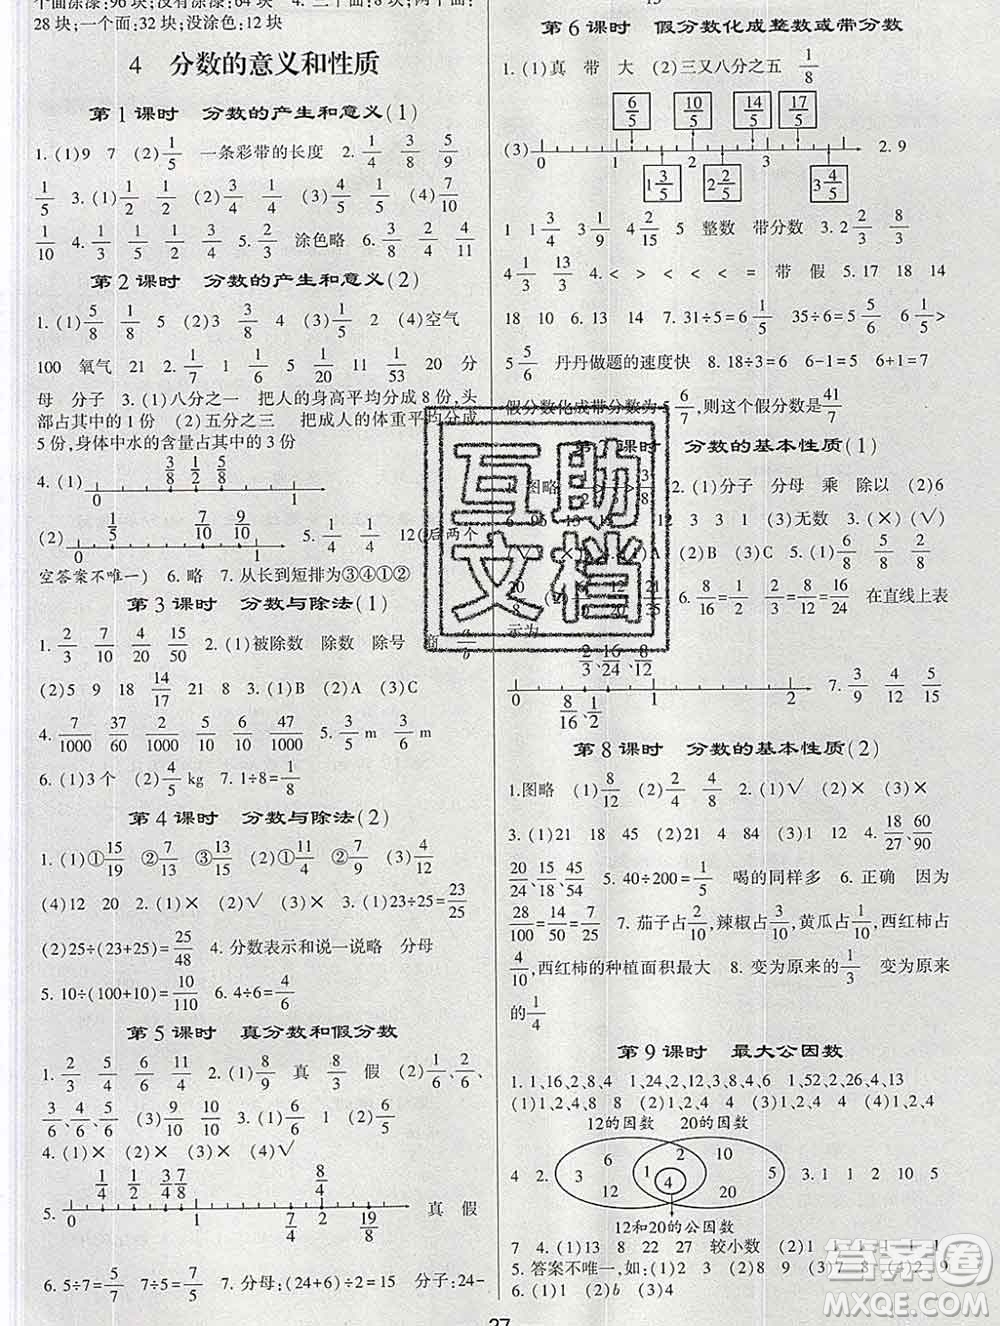 个面涂漆:96块;没有涂漆:64块 4. 三个面:8块;两个面:
28块;一个面:32块;没涂色:12块
4 分数的意义和性质
第1课时 分数的产生和意义(1)
1. (1)9 7 (2)1/5 一条彩带的长度 2. 1/4 3/8 5/9
1/5 3. (1)1/2 1/2 (2)3/4 1/4 (3)1/5 4/5 (4)7/10
1/10 4. 1/3 1/2 3/4 5. 2/3 涂色略 6. 3/8 2/4 4/11
第2课时 分数的产生和意义(2)
1. (1)5/8 1/8 5 (2)3 3/8 4 (3)1/5 2 (4)空气
100 氧气 21 2. 1/7 6 1/11 5 11/20 1/20 9 分
母 分子 3. (1)八分之一 把人的身高平均分成8份,头
部占其中的1份 (2)五分之三 把成人的体重平均分成
5份,身体中水的含量占其中的3份
4. (1) 0 3/8 1/2 5/8 1
(2) 0 1/5 7/10 9/10 1 5. 1/4 1/4 12(后两个
空答案不唯一) 6. 略 7. 从长到短排为③④①②
第3课时 分数与除法(1)
1. 2/3 7/10 4/15 7/20 2. (1)被除数 除数 除号 商 a/b
(2)5 9 18 14/17 21 8 3. (1)B (2)A (3)C
4. 7/1000 37/1000 2/5 6/10 6/10 47/100 5. 3/5 m 3/4 m
6. (1)3个 (2)4/5 kg 7. 1÷8=1/8
第4课时 分数与除法(2)
1. (1)①15/19 ②7/13 ③13/15 (2)①2/3 ②2/3 (3)4/5
(4)12 20 2. (1)√ (2)√ 3. (1)23÷25=23/25
(2)25÷(23+25)=25/48 4. 分数表示和说一说略 分母
5. 10÷(100+10)=10/110 6. 4÷6=4/6
第5课时 真分数和假分数
1. 2/3 5/4 6/6 11/4 2. (1)8/9 真 8/8 假 (2)1/6、2/6、
3/6、4/6、5/6 (3)9/10 9/9 3. (1)6/6 (2)1/6 (3)1/2
4. (1)√ (2)× (3)√ (4)×
5. 0 1/4 1/2 3/4 7/8 1 7/4 2 8/4 19/8 真 假
6. 5÷7=5/7 7÷5=7/5 7. 分母:(24+6)÷2=15 分子:24-
第6课时 假分数化成整数或带分数
1. (1)真 带 大 (2)三又八分之五 1/8
6/5 10/5 14/5 17/5
(3) 0 1 2 3 2. 9
1 3/5 2 2/5 3 4/5
1 1 1/9 3 1/9 4 2/15 5 整数 带分数 3. 2/3 8/3
4 1/3 13/3 4. < > < < < = 带 假 5. 17 18 14
18 10 6. 13 14 7. 31÷5=6 1/5 35÷6=5 5/6 6 1/5>
5 5/6 丹丹做题的速度快 8. 18÷3=6 6-1=5 6+1=7
假分数化成带分数为5 6/7,则这个假分数是41/7
课时 分数的基本性质(1)
图略 3/8 2. (1)分子 分母 乘 除以 (2)6
12 3 3 1 (3)无数 3. (×) (√)
A (2)B (3)C 5. 12/16 15/20
21 6. 8/12 2/3 16/24 1/2 8/16 在直线上表
示为
2/3、16/24、8/12
0 8/16、1/2 1 2 7. 3/4 4/6 5/15
第8课时 分数的基本性质(2)
1.图略 (1)8/12 (2)4/10 2. (1)√ (2)× (3)×
3. (1)21 18 45 (2)21 4 84 (3)1 1 4. 18/27、60/90
20/24、15/18、45/54 5. 40÷200=1/5 喝的同样多 6. 正确 因为
28/100=14/50=7/25 7. 茄子占2/10,辣椒占1/10,黄瓜占3/10,西红柿占
4/10,西红柿的种植面积最大 8. 变为原来的1/3 变为原来
的1/4
第9课时 最大公因数
1. 1,16,2,8,4 1,24,2,12,3,8,4,6 1,52,2,26,4,13
(1)1,2,4,8 8 (2)1,2,4 4 (3)1,2,4
12的因数 20的因数
4 2. 3 6 12 1 2 4 10 5 20 3. 1 2 10 5
12和20的公因数
7 4. (1)13 8 22 27 较小数 (2)1 1 1 1
5. 答案不唯一,如:(1)2 7 8 9
6. (1)1 (2)b (3)4
27
互助文档
答案圈
MXQE.COM